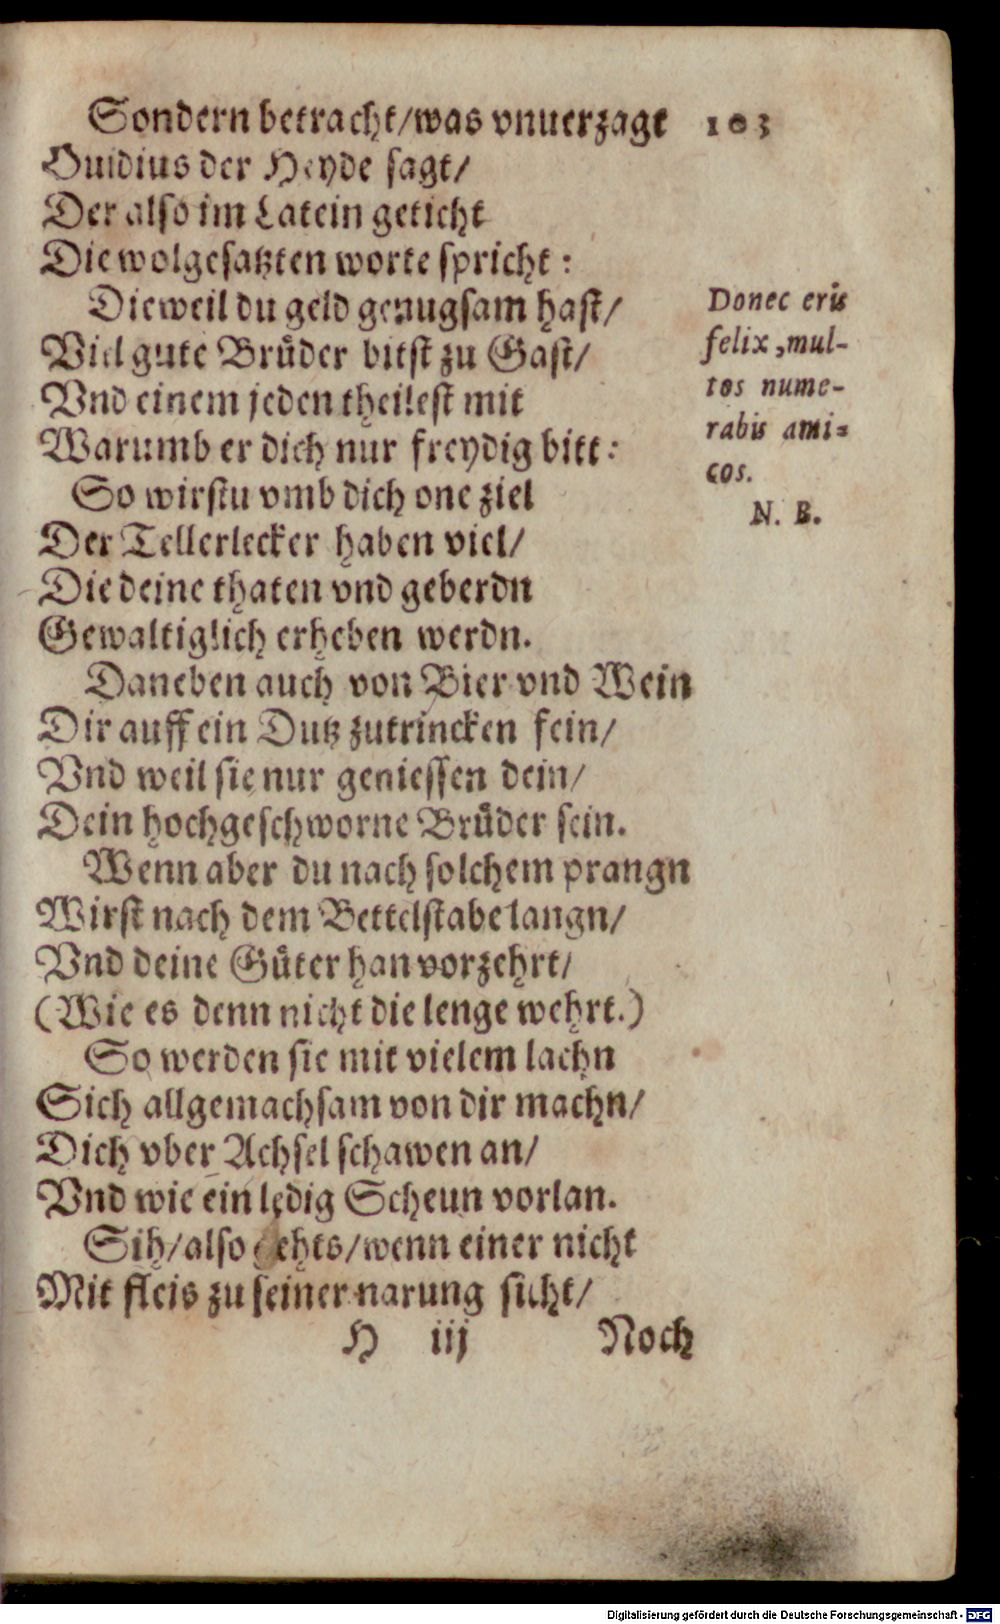 Sondern betracht/was vnuerzagt 103
Ouidius der Heyde sagt/
Der also im Latein geticht
Die wolgesatzten worte spricht:
Dieweil du geld genugsam hast/
Viel gute Brüder bitst zu Gast/
Vnd einem jeden theilest mit
Warumb er dich nur freydig bitt:
So wirstu vmb dich one ziel
Der Tellerlecker haben viel/
Die deine thaten vnd geberdn
Gewaltiglich erheben werdn.
Daneben auch von Bier vnd Wein
Dir auff ein Dutz zutrincken fein/
Vnd weil sie nur geniessen dein/
Dein hochgeschworne Brüder sein.
Wenn aber du nach solchem prangn
Wirst nach dem Bettelstabe langn/
Vnd deine Güter han vorzehrt/
(Wie es denn nicht die lenge wehrt.)
So werden sie mit vielem lachn
Sich allgemachsam von dir machn/
Dich vber Achsel schawen an/
Vnd wie ein ledig Scheun vorlan.
Sih/also gehts/wenn einer nicht
Mit fleis zu seiner narung sicht/
H iij Noch
Donec eris
felix, mul-
tos nume-
rabis ami-
cos.
N. B.
Digitalisierung gefördert durch die Deutsche Forschungsgemeinschaft - DFG